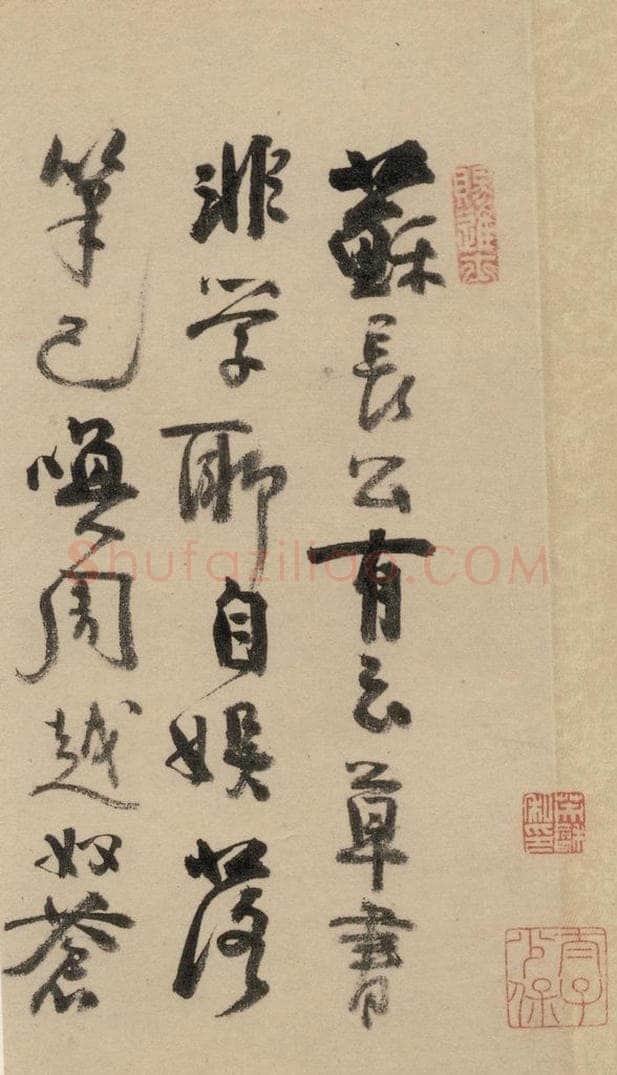 蘇長公有云草書
非学聊自娱落
筆已喚周越奴蒼
太子少保
Shufaziliao.COM